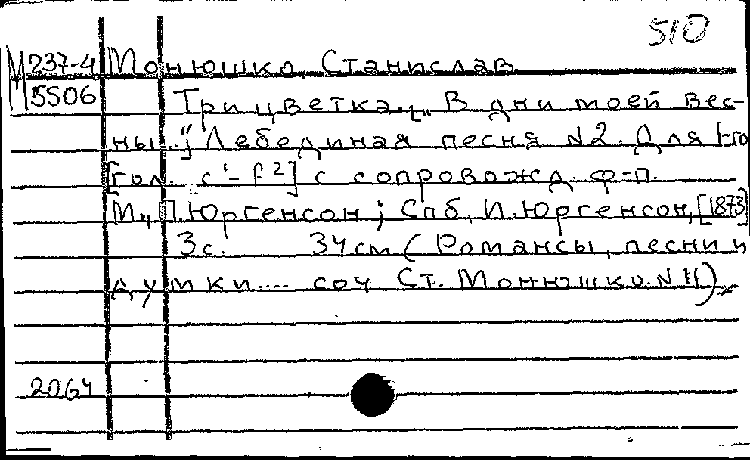 510
М 237-4 Монюшко, Станислав
5506 Три цветка. „В дни моей вес-
ны..."; Лебединая песня № 2. Для 1-го
гол. [c¹-f²] с сопровожд. ф-п.
М., П. Юргенсон; Спб, И. Юргенсон, [1873]
3 с. 34 см (Романсы, песни и
думки.... соч Ст. Монюшки. № 11).
2064